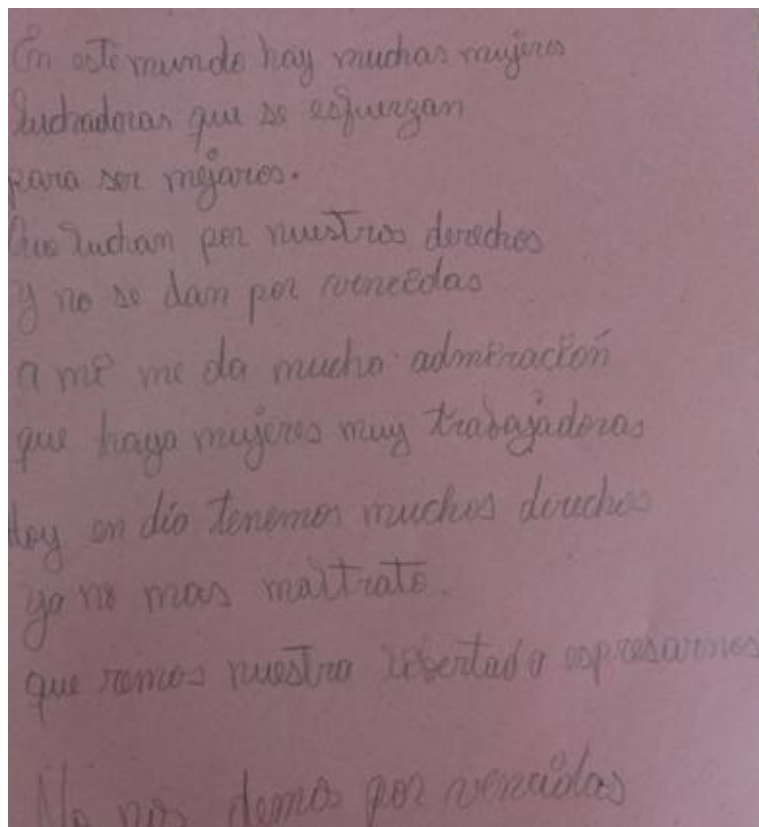 En este mundo hay muchas mujeres
luchadoras que se esfuerzan
para ser mejores.
Que luchan por nuestros derechos
y no se dan por vencidas
a mi me da mucha admiración
que haya mujeres muy trabajadoras
Hoy en día tenemos muchos derechos
ya no mas maltrato.
que remos nuestra libertad a espresarnos
No nos demos por vencidas